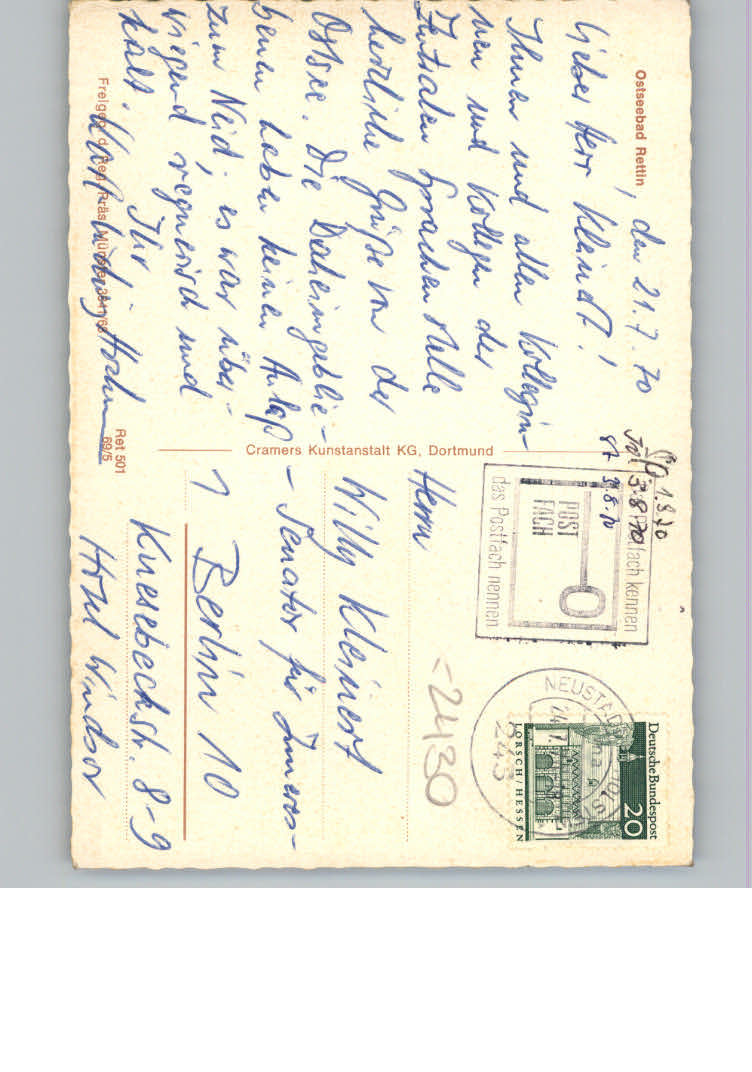 Ostseebad Rettin
, den 21.7.70
Lieber Herr Kleinert!
Ihnen und allen Kollegin-
nen und Kollegen der
Zentralen Sprachenstelle
herzliche Grüße von der
Ostsee. Die Daheimgeblie-
benen haben keinen Anlaß
zum Neid; es war über-
wiegend regnerisch und
kalt.
Ihr
Freigeg. d. Reg. Präs. Münster
Ret 501
69/5
Cramers Kunstanstalt KG, Dortmund
1.8.70
3.8.70
3.8.70
fach kennen
POST
FACH
das Postfach nennen
NEUSTADT
243
Deutsche Bundespost
20
LORSCH/HESSEN
-2430
Herrn
Willy Kleinert
- Senator für Inneres-
1 Berlin 10
Knesebeckstr. 8-9
Hotel Windsor